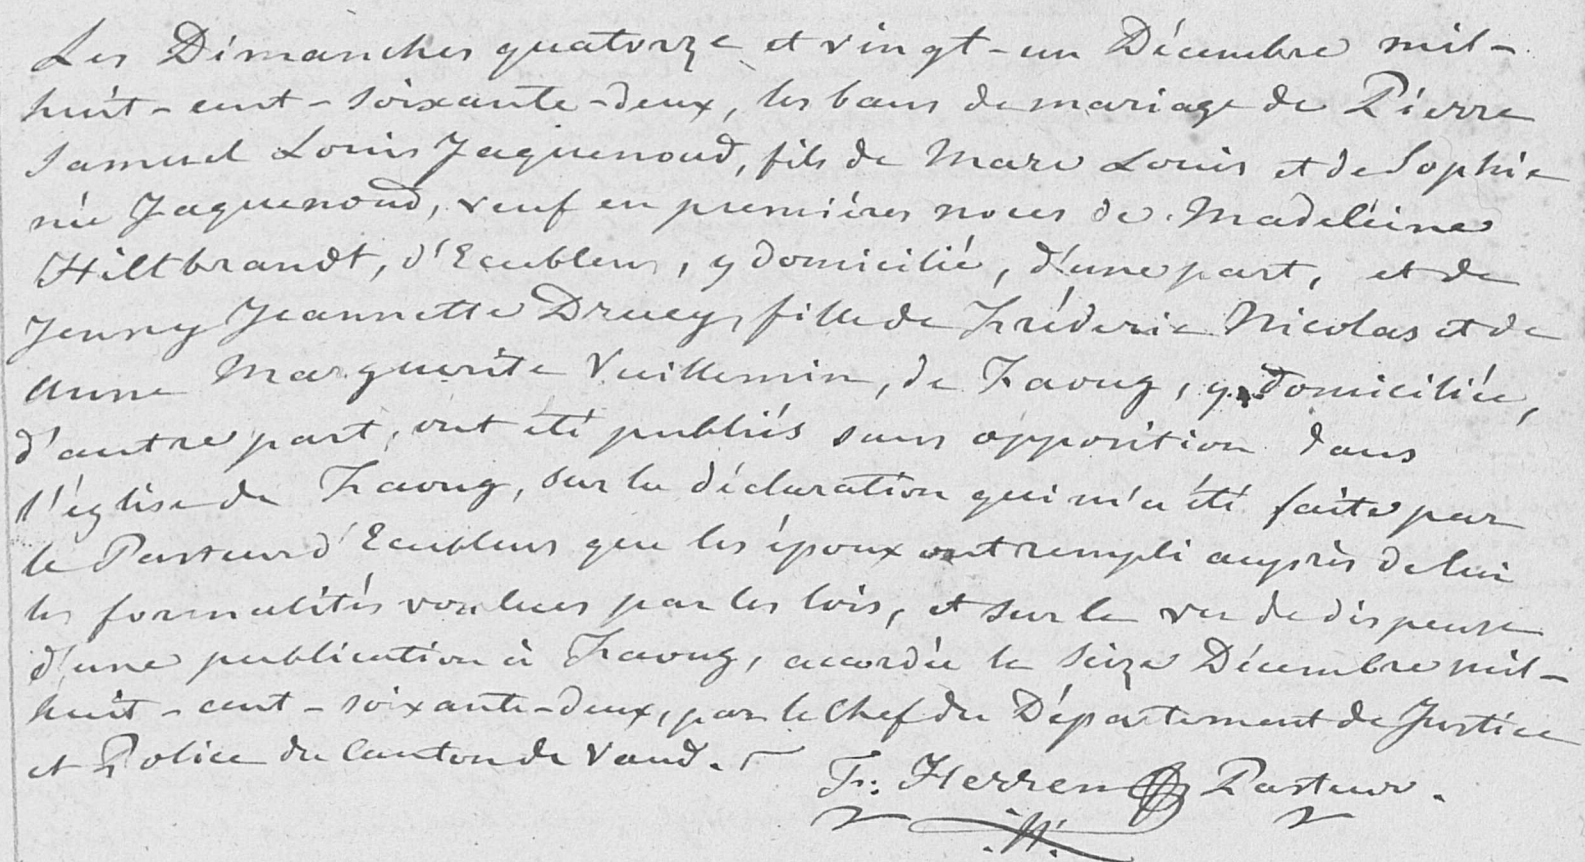 Les Dimanches quatorze et vingt-un Décembre mil-
huit-cent-soixante-deux, les bans de mariage de Pierre
Samuel Louis Jaquenoud, fils de Marc Louis et de Sophie
née Jaquenoud, veuf en premières noces de Madeleine
Hiltbrandt, d'Ecublens, y domicilié, d'une part, et de
Jenny Jeannette Druey, fille de Fréderic Nicolas et de
Anne Marguerite Vuillemin, de Faoug, y domiciliée,
d'autre part, ont été publiés sans opposition dans
l'église de Faoug, sur la déclaration qui m'a été faite par
le Pasteur d'Ecublens que les époux ont rempli auprès de lui
les formalités voulues par les lois, et sur le vu de dispense
d'une publication à Faoug, accordée le seize Décembre mil-
huit-cent-soixante-deux, par le Chef du Département de Justice
et Police du Canton de Vaud.
Fr: Herren Pasteur.